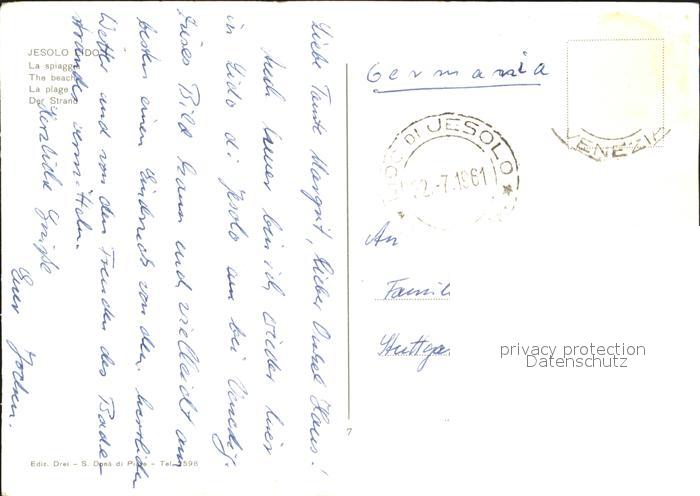 JESOLO LIDO
La spiaggia
The beach
La plage
Der Strand
Liebe Tante Margrit, lieber Onkel Hans!
Auch immer bin ich wieder hier
in Lido di Jesolo am bei Venedig.
Dieses Bild kann und vielleicht am
besten einen Eindruck von dem herrlichen
Wetter und von den Freuden des Bade-
strandes vermitteln.
Herzliche Grüße
Euer Jochen.
Germania
LIDO DI JESOLO
2.-7.1961
VENEZIA
An
Famil
Stuttga
privacy protection
Datenschutz
7
Ediz. Drei - S. Donà di Piave - Tel. 2598